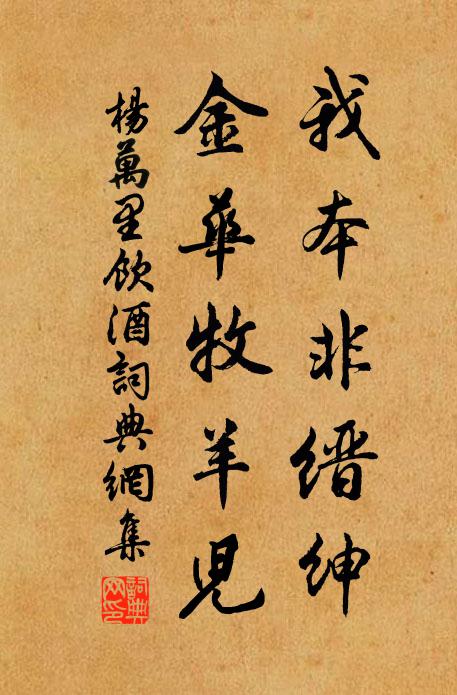 我本非縉紳
金華牧羊兒
楊萬里飲酒詞典網集
詞典網印